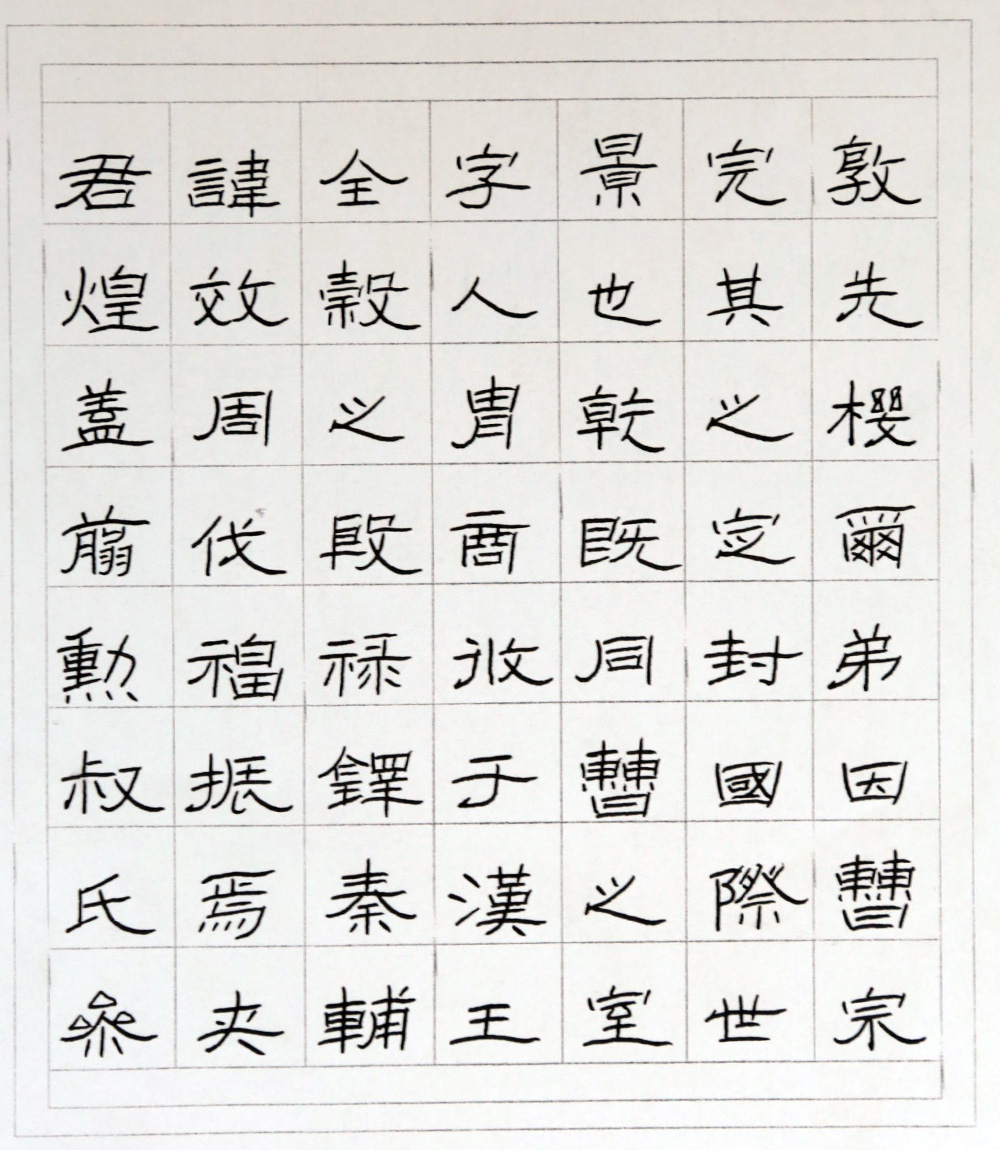 君諱全字景完敦
煌效穀人也其先
蓋周之胄乾之機
翦伐殷商既定爾
勳福祿攸同封弟
叔振鐸于曹國因
氏焉秦漢之際曹
參夾輔王室世宗